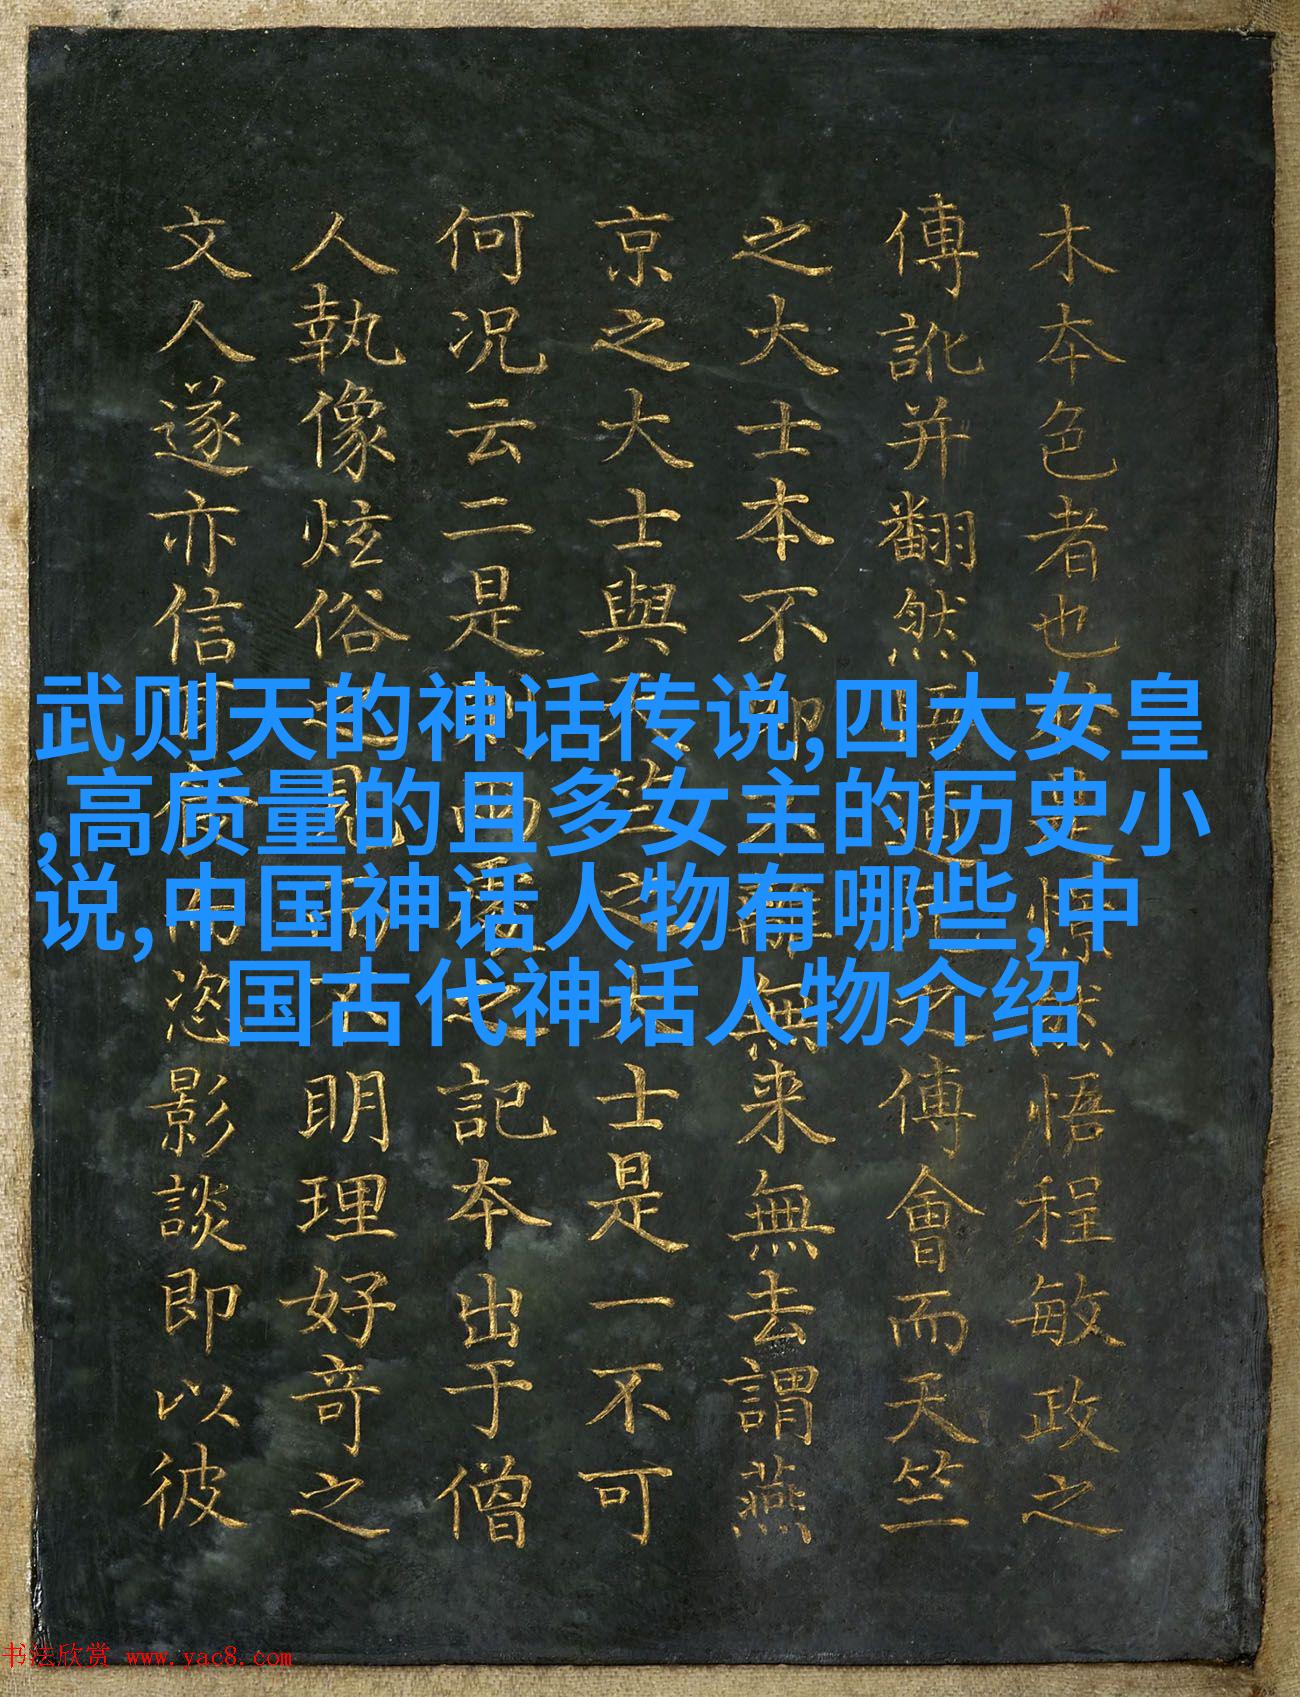 武则天的神话传说,四大女皇
,高质量的且多女主的历史小
说,中国神话人物有哪些,中
国古代神话人物介绍
木夲色者也 然悟程敏政之
傳訛并翻然 之傅會而天竺
之大士本不 無来無去謂燕
京之大士與 竺之大士是一不可
何况云二是 之記夲出于僧
人執像炫俗 不明理好奇之
文人遂亦信 恣影談即以彼
书法欣赏 www.yac8.com